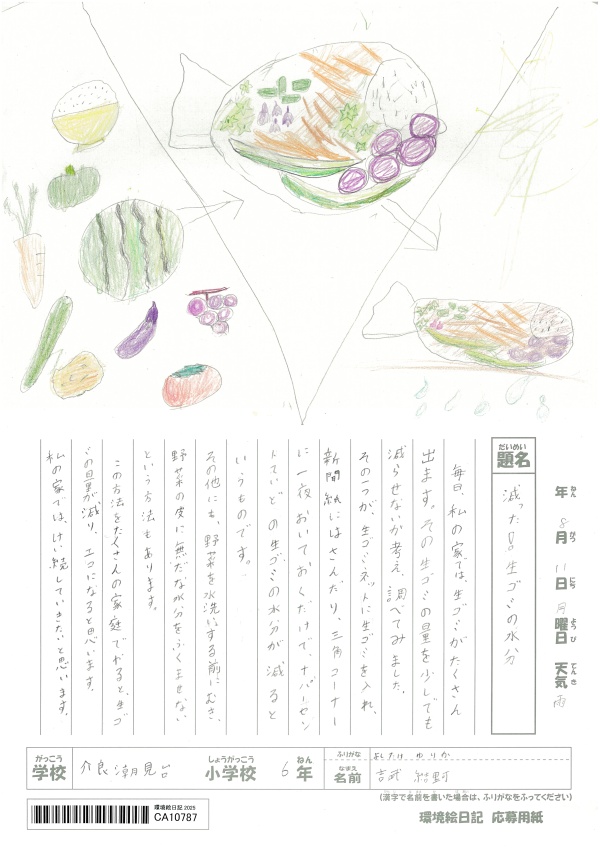 年 8月 11日 月曜日 天気 雨
ねん がつ にち ようび てんき
だいめい
題名
減った!?生ゴミの水分
毎日、私の家では、生ゴミがたくさん
出ます。その生ゴミの量を少しでも
減らせないか考え、調べてみました。
その一つが、生ゴミネットに生ゴミを入れ、
新聞紙にはさんだり、三角コーナー
に一夜おいておくだけで、ナパーセン
トていどの生ゴミの水分が減ると
いうものです。
その他にも、野菜を水洗いする前にむき、
野菜の皮に無だな水分をふくませない
という方法もあります。
この方法をたくさんの家庭でやると、生ゴ
ミの量が減り、エコになると思います。
私の家では、けい続していきたいと思います。
がっこう
学校
介良潮見台
しょうがっこう
小学校
6年
ねん
ふりがな
よしたけ ゆりか
なまえ
名前
吉武
(漢字で名前を書いた場合は、ふりがなをふってください)
環境絵日記 2025
CA10787
環境絵日記 応募用紙